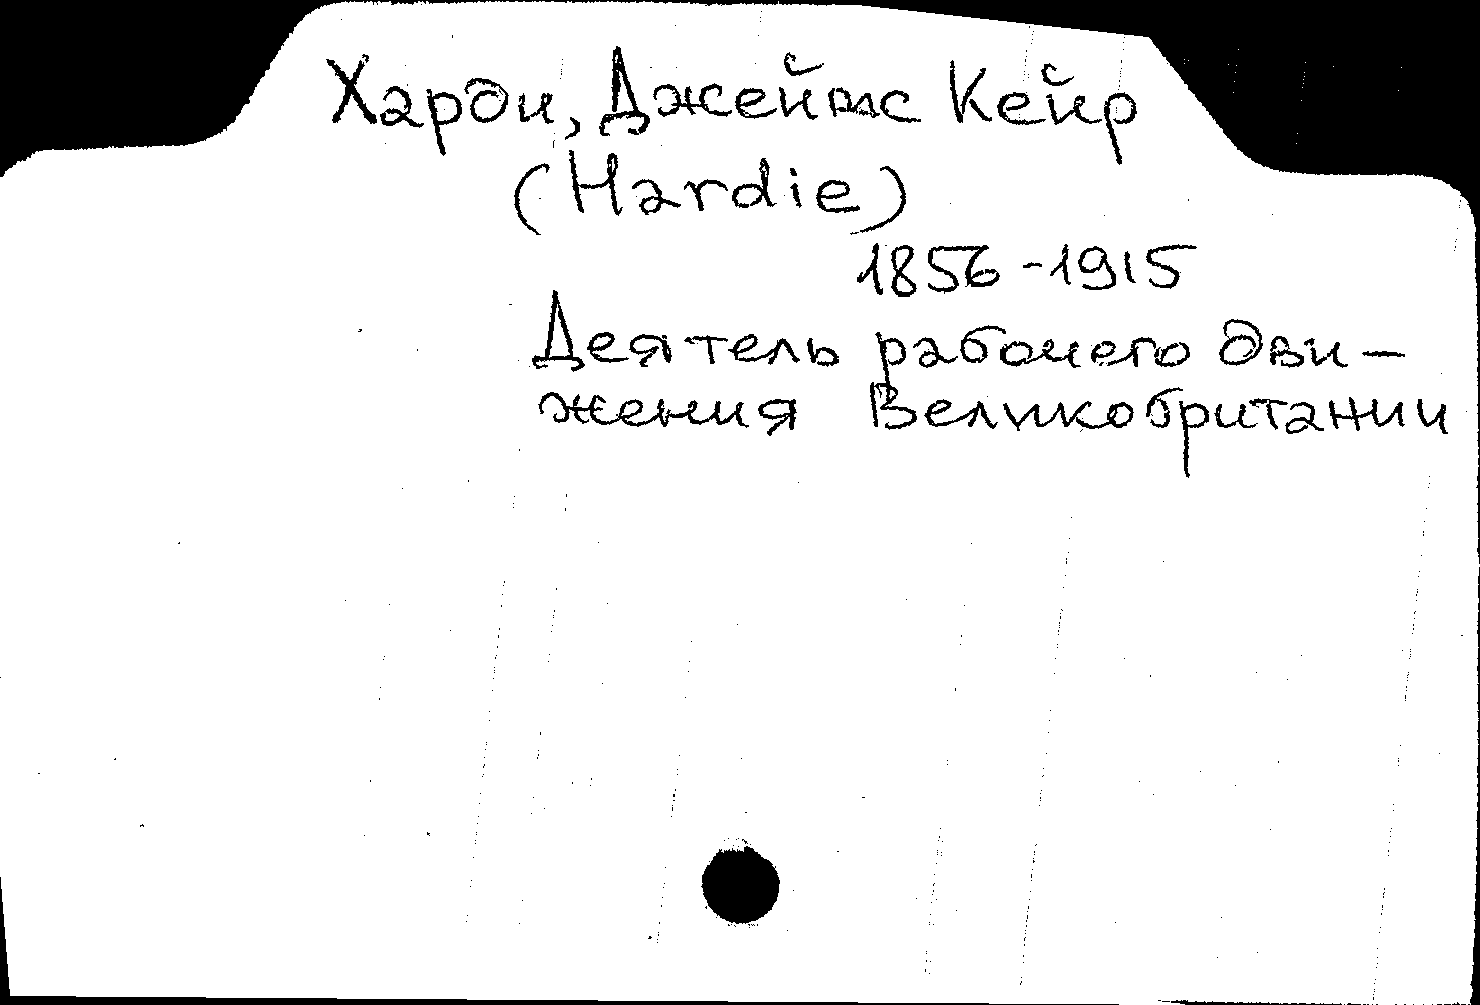 Харди, Джеймс Кейр
(Hardie)
1856-1915
Деятель рабочего дви-
жения Великобритании